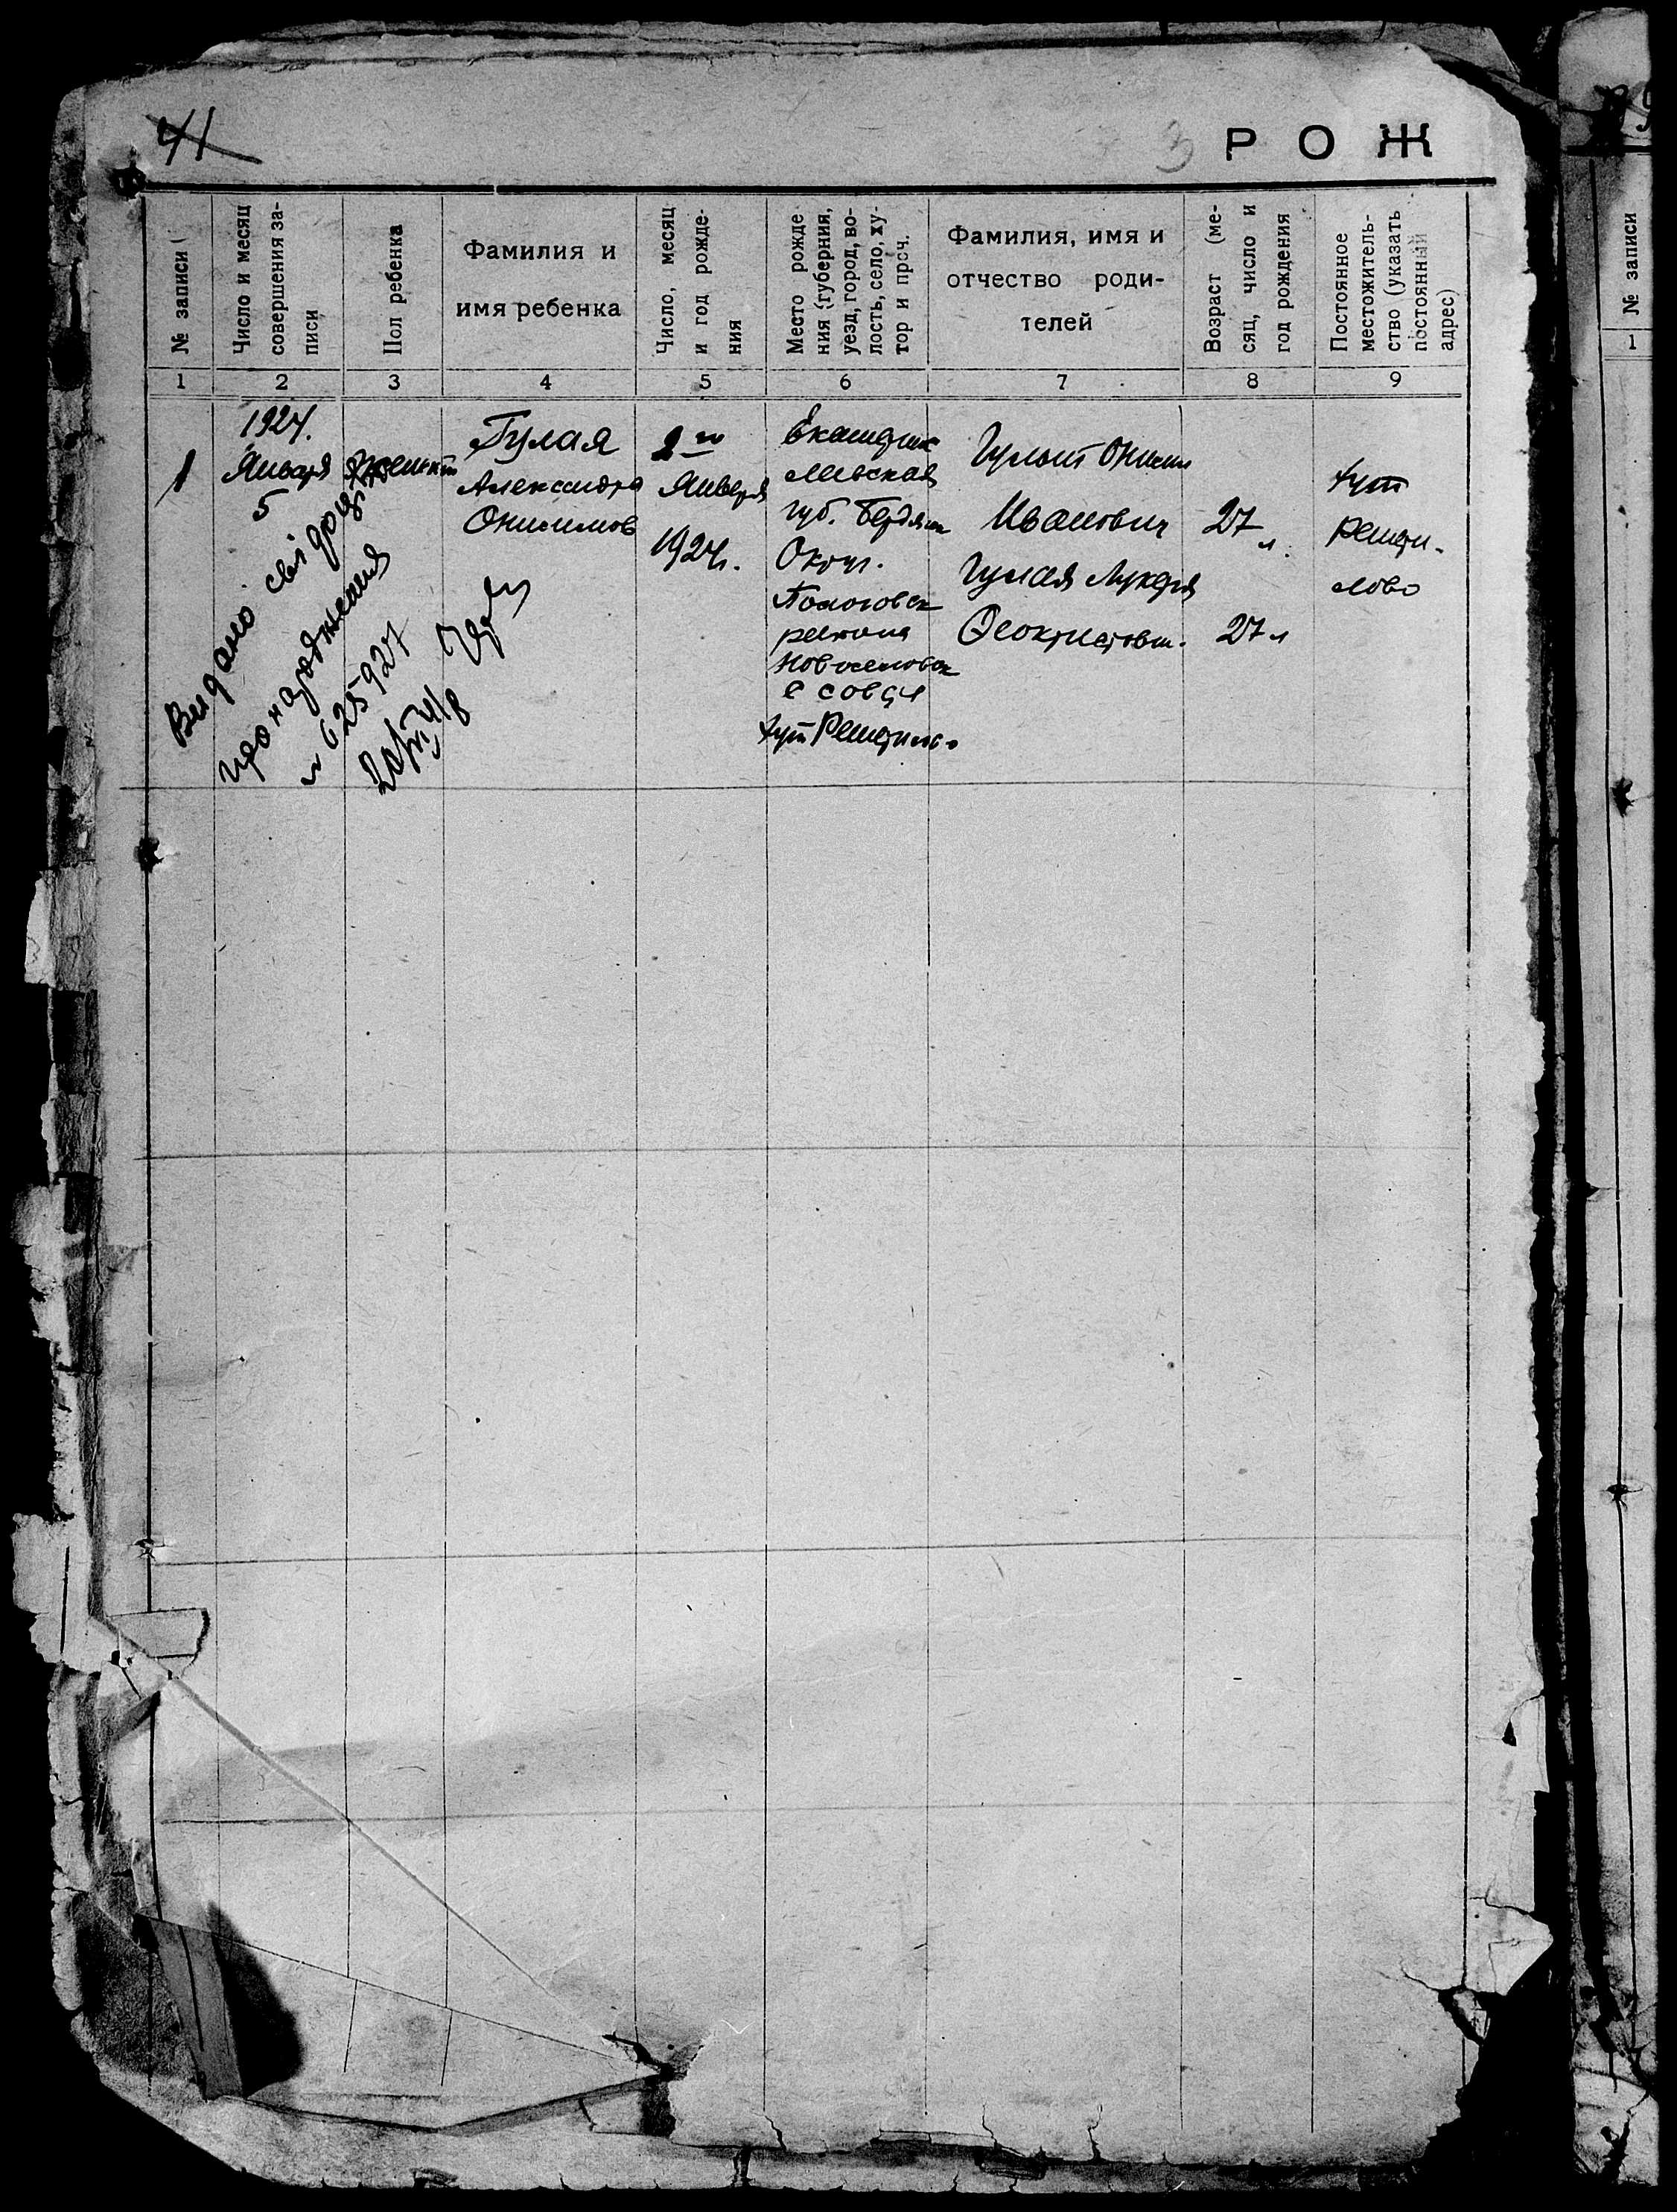 41
3
РОЖ
№ записи
Число и месяц
совершения за-
писи
Пол ребенка
Фамилия и
имя ребенка
Число, месяц
и год рожде-
ния
Место рожде
ния (губерния,
уезд, город, во-
лость, село, ху-
тор и проч.
Фамилия, имя и
отчество роди-
телей
Возраст (ме-
сяц, число и
год рождения
Постоянное
местожитель-
ство (указать
постоянный
адрес)
1
2
3
4
5
6
7
8
9
1
1924.
Января
5
Гулая
Александра
Онисимов
2го
Января
1924г.
Екатерин
лавская
губ. Бердян
Округ.
Пологовск
района
Новоселовск
с совет
хут Решетилово
Гулый Онисим
Иванович
Гулая Лукерья
Феоктистовн.
27 л.
27 л
хут
Решети-
лово
Видано свідоцт
про народження
№ 625927
№ записи
1